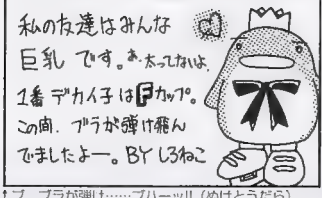 私の友達はみんな
巨乳です。あ、太ってないよ。
1番デカイ子はFカップ。
この間、ブラが弾け飛ん
でましたよー。BY しろねこ
↑ブ、ブラが弾け……ブハーッ!!(めけとうだら)